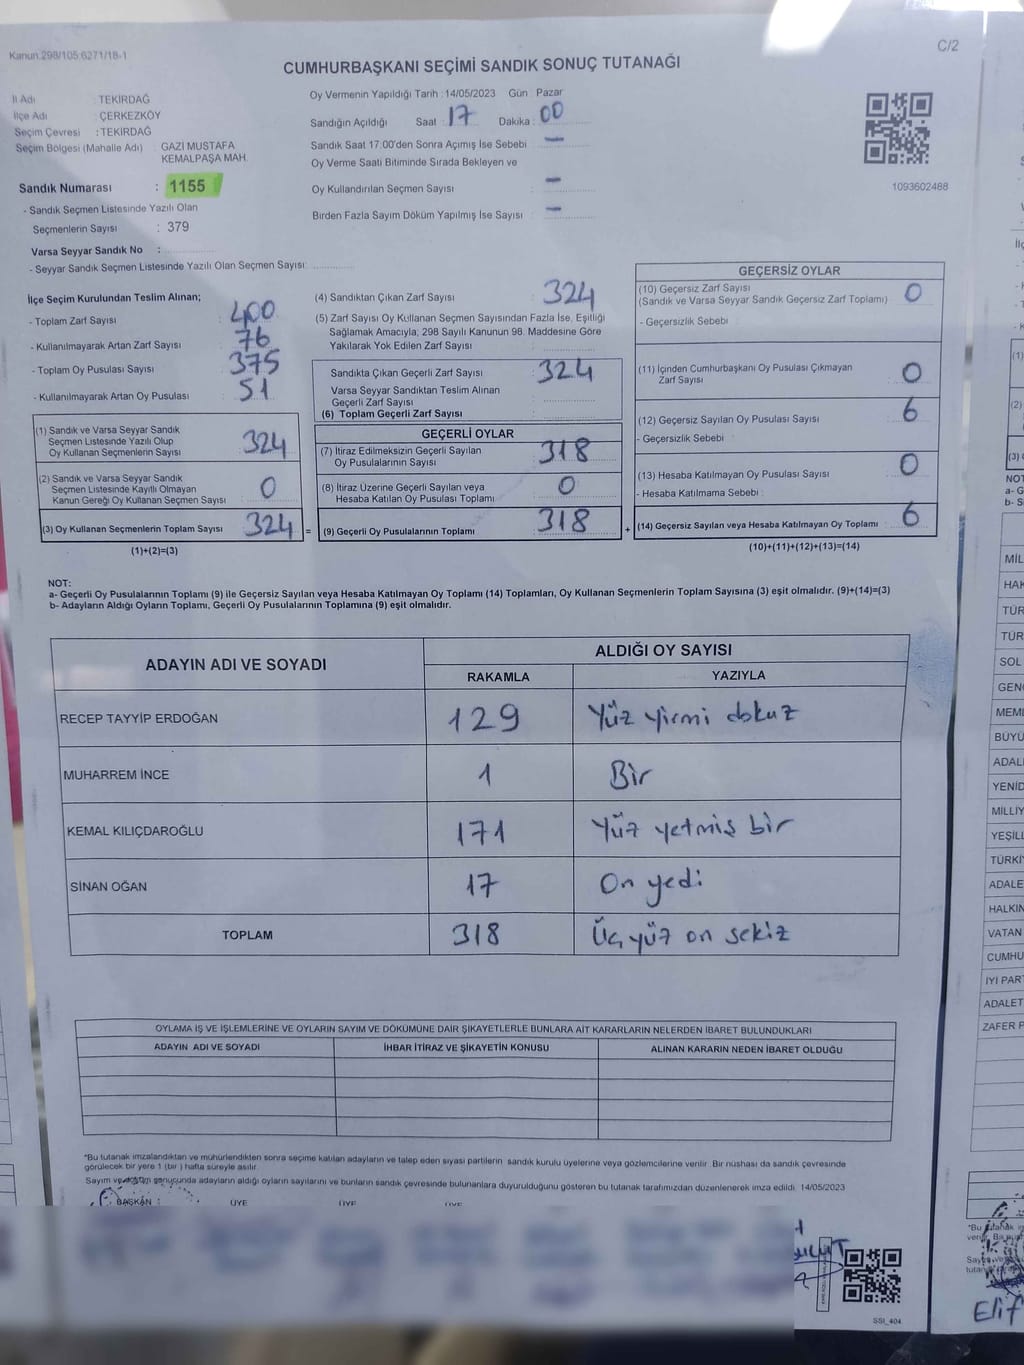 Kanun:298/105;6271/18-1
C/2
CUMHURBAŞKANI SEÇİMİ SANDIK SONUÇ TUTANAĞI
İl Adı : TEKİRDAĞ
İlçe Adı : ÇERKEZKÖY
Seçim Çevresi : TEKİRDAĞ
Seçim Bölgesi (Mahalle Adı) : GAZİ MUSTAFA
KEMALPAŞA MAH.
Sandık Numarası : 1155
- Sandık Seçmen Listesinde Yazılı Olan
Seçmenlerin Sayısı : 379
Varsa Seyyar Sandık No :
- Seyyar Sandık Seçmen Listesinde Yazılı Olan Seçmen Sayısı:
Oy Vermenin Yapıldığı Tarih : 14/05/2023 Gün Pazar
Sandığın Açıldığı Saat : 17 Dakika : 00
Sandık Saat 17:00'den Sonra Açımış İse Sebebi : -
Oy Verme Saati Bitiminde Sırada Bekleyen ve
Oy Kullandırılan Seçmen Sayısı : -
Birden Fazla Sayım Döküm Yapılmış İse Sayısı : -
1093602488
İlçe Seçim Kurulundan Teslim Alınan;
- Toplam Zarf Sayısı : 400
- Kullanılmayarak Artan Zarf Sayısı : 76
- Toplam Oy Pusulası Sayısı : 375
- Kullanılmayarak Artan Oy Pusulası : 51
(1) Sandık ve Varsa Seyyar Sandık
Seçmen Listesinde Yazılı Olup
Oy Kullanan Seçmenlerin Sayısı : 324
(2) Sandık ve Varsa Seyyar Sandık
Seçmen Listesinde Kayıtlı Olmayan
Kanun Gereği Oy Kullanan Seçmen Sayısı : 0
(3) Oy Kullanan Seçmenlerin Toplam Sayısı : 324 =
(1)+(2)=(3)
(4) Sandıktan Çıkan Zarf Sayısı : 324
(5) Zarf Sayısı Oy Kullanan Seçmen Sayısından Fazla İse, Eşitliği
Sağlamak Amacıyla; 298 Sayılı Kanunun 98. Maddesine Göre
Yakılarak Yok Edilen Zarf Sayısı
Sandıkta Çıkan Geçerli Zarf Sayısı : 324
Varsa Seyyar Sandıktan Teslim Alınan
Geçerli Zarf Sayısı
(6) Toplam Geçerli Zarf Sayısı
GEÇERLİ OYLAR
(7) İtiraz Edilmeksizin Geçerli Sayılan
Oy Pusulalarının Sayısı : 318
(8) İtiraz Üzerine Geçerli Sayılan veya
Hesaba Katılan Oy Pusulası Toplamı : 0
(9) Geçerli Oy Pusulalarının Toplamı : 318 +
GEÇERSİZ OYLAR
(10) Geçersiz Zarf Sayısı
(Sandık ve Varsa Seyyar Sandık Geçersiz Zarf Toplamı) : 0
- Geçersizlik Sebebi :
(11) İçinden Cumhurbaşkanı Oy Pusulası Çıkmayan
Zarf Sayısı : 0
(12) Geçersiz Sayılan Oy Pusulası Sayısı : 6
- Geçersizlik Sebebi :
(13) Hesaba Katılmayan Oy Pusulası Sayısı : 0
- Hesaba Katılmama Sebebi :
(14) Geçersiz Sayılan veya Hesaba Katılmayan Oy Toplamı : 6
(10)+(11)+(12)+(13)=(14)
NOT:
a- Geçerli Oy Pusulalarının Toplamı (9) ile Geçersiz Sayılan veya Hesaba Katılmayan Oy Toplamı (14) Toplamları, Oy Kullanan Seçmenlerin Toplam Sayısına (3) eşit olmalıdır. (9)+(14)=(3)
b- Adayların Aldığı Oyların Toplamı, Geçerli Oy Pusulalarının Toplamına (9) eşit olmalıdır.
ADAYIN ADI VE SOYADI
ALDIĞI OY SAYISI
RAKAMLA YAZIYLA
RECEP TAYYİP ERDOĞAN 129 Yüz yirmi dokuz
MUHARREM İNCE 1 Bir
KEMAL KILIÇDAROĞLU 171 Yüz yetmiş bir
SİNAN OĞAN 17 On yedi
TOPLAM 318 Üç yüz on sekiz
OYLAMA İŞ VE İŞLEMLERİNE VE OYLARIN SAYIM VE DÖKÜMÜNE DAİR ŞİKAYETLERLE BUNLARA AİT KARARLARIN NELERDEN İBARET BULUNDUKLARI
ADAYIN ADI VE SOYADI İHBAR İTİRAZ VE ŞİKAYETİN KONUSU ALINAN KARARIN NEDEN İBARET OLDUĞU
*Bu tutanak imzalandıktan ve mühürlendikten sonra seçime katılan adayların ve talep eden siyasi partilerin sandık kurulu üyelerine veya gözlemcilerine verilir. Bir nüshası da sandık çevresinde
görülecek bir yere 1 (bir ) hafta süreyle asılır.
Sayım ve döküm sonucunda adayların aldığı oyların sayılarını ve bunların sandık çevresinde bulunanlara duyurulduğunu gösteren bu tutanak tarafımızdan düzenlenerek imza edildi. 14/05/2023
BAŞKAN ÜYE ÜYE ÜYE
SSI_404
(1)
(2)
(3)
NOT
a- G
b- S
MİL
HAK
TÜR
TÜR
SOL
GENÇ
MEML
BÜYÜ
ADAL
YENİD
MİLLİY
YEŞİLL
TÜRKİY
ADALE
HALKIN
VATAN
CUMHU
İYİ PAR
ADALET
ZAFER P
*Bu
Elif